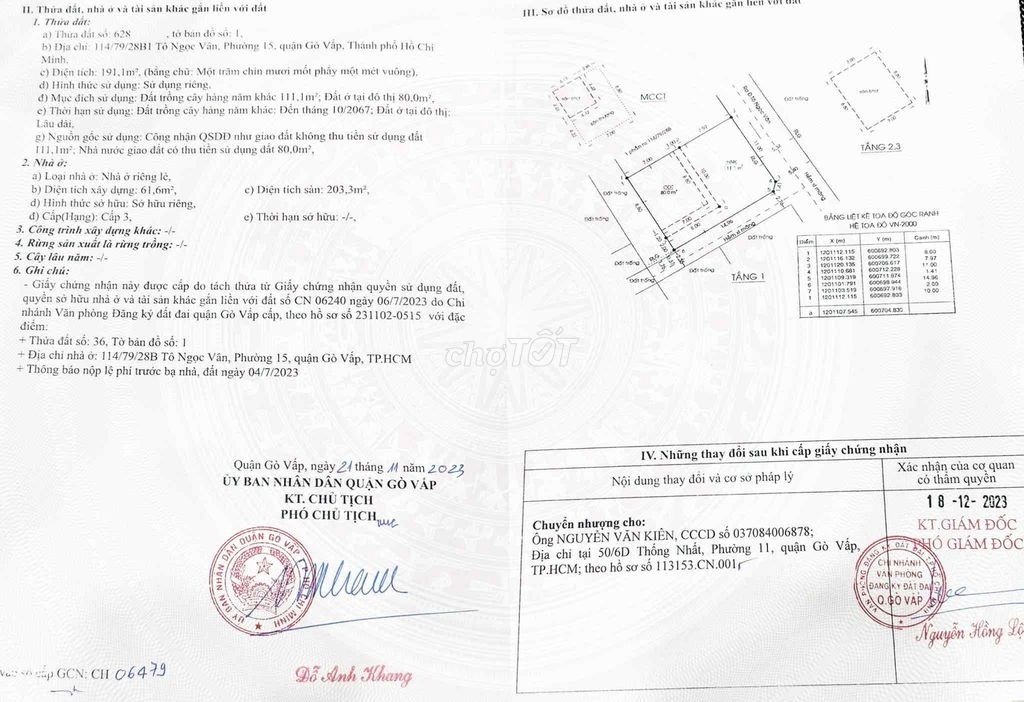 II. Thửa đất, nhà ở và tài sản khác gắn liền với đất
1. Thửa đất:
a) Thửa đất số: 628 , tờ bản đồ số: 1,
b) Địa chỉ: 114/79/28B1 Tô Ngọc Vân, Phường 15, quận Gò Vấp, Thành phố Hồ Chí
Minh,
c) Diện tích: 191,1m², (bằng chữ: Một trăm chín mươi mốt phẩy một mét vuông),
d) Hình thức sử dụng: Sử dụng riêng,
đ) Mục đích sử dụng: Đất trồng cây hàng năm khác 111,1m²; Đất ở tại đô thị 80,0m²,
e) Thời hạn sử dụng: Đất trồng cây hàng năm khác: Đến tháng 10/2067; Đất ở tại đô thị:
Lâu dài,
g) Nguồn gốc sử dụng: Công nhận QSDĐ như giao đất không thu tiền sử dụng đất
111,1m²; Nhà nước giao đất có thu tiền sử dụng đất 80,0m²,
2. Nhà ở:
a) Loại nhà ở: Nhà ở riêng lẻ,
b) Diện tích xây dựng: 61,6m², c) Diện tích sàn: 203,3m²,
d) Hình thức sở hữu: Sở hữu riêng,
đ) Cấp(Hạng): Cấp 3, e) Thời hạn sở hữu: -/-,
3. Công trình xây dựng khác: -/-
4. Rừng sản xuất là rừng trồng: -/-
5. Cây lâu năm: -/-
6. Ghi chú:
- Giấy chứng nhận này được cấp do tách thửa từ Giấy chứng nhận quyền sử dụng đất,
quyền sở hữu nhà ở và tài sản khác gắn liền với đất số CN 06240 ngày 06/7/2023 do Chi
nhánh Văn phòng Đăng ký đất đai quận Gò Vấp cấp, theo hồ sơ số 231102-0515 với đặc
điểm:
+ Thửa đất số: 36, Tờ bản đồ số: 1
+ Địa chỉ nhà ở: 114/79/28B Tô Ngọc Vân, Phường 15, quận Gò Vấp, TP.HCM
+ Thông báo nộp lệ phí trước bạ nhà, đất ngày 04/7/2023
Quận Gò Vấp, ngày 21 tháng 11 năm 2023
ỦY BAN NHÂN DÂN QUẬN GÒ VẤP
KT. CHỦ TỊCH
PHÓ CHỦ TỊCH
ỦY BAN NHÂN DÂN QUẬN GÒ VẤP T.P HỒ CHÍ MINH
Đỗ Anh Khang
số cấp GCN: CH 06479
III. Sơ đồ thửa đất, nhà ở và tài sản khác gắn liền với đất
MCCT
TẦNG 2,3
TẦNG 1
Đất trống
Đất trống
Đất trống
Đất trống
Đất trống
Hẻm xi măng
Hẻm xi măng
ODT
80.0 m²
BẢNG LIỆT KÊ TỌA ĐỘ GÓC RANH
HỆ TỌA ĐỘ VN-2000
Điểm X (m) Y (m) Cạnh (m)
1 1201112.115 600692.803
8.60
2 1201116.132 600699.722
7.97
3 1201120.135 600706.617
11.00
4 1201110.681 600712.228
1.41
5 1201109.319 600711.874
14.96
6 1201101.791 600698.944
2.00
7 1201103.519 600697.916
10.00
1 1201112.115 600692.803
a 1201107.545 600704.830
chợTỐT
IV. Những thay đổi sau khi cấp giấy chứng nhận
Nội dung thay đổi và cơ sở pháp lý
Xác nhận của cơ quan
có thẩm quyền
Chuyển nhượng cho:
Ông NGUYỄN VĂN KIÊN, CCCD số 037084006878;
Địa chỉ tại 50/6D Thống Nhất, Phường 11, quận Gò Vấp,
TP.HCM; theo hồ sơ số 113153.CN.001
18 -12- 2023
KT.GIÁM ĐỐC
PHÓ GIÁM ĐỐC
CHI NHÁNH
VĂN PHÒNG
ĐĂNG KÝ ĐẤT ĐAI
Q.GÒ VẤP
Nguyễn Hồng Lộ